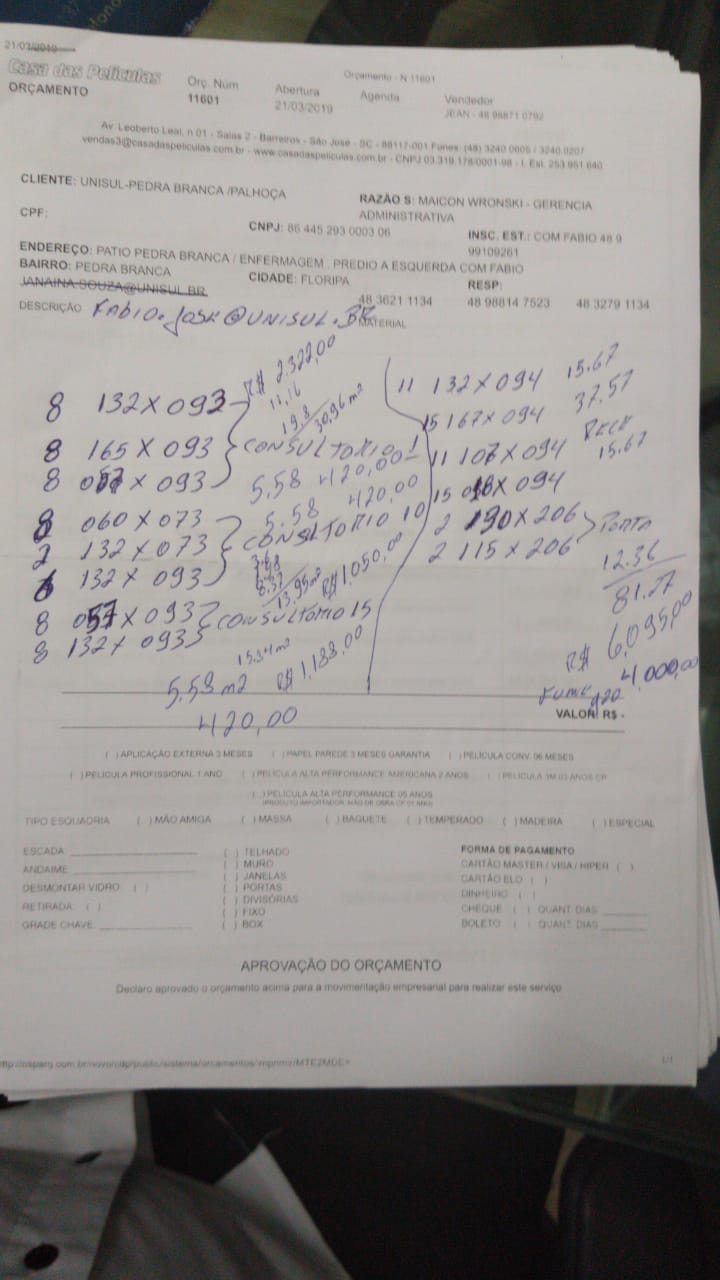 21/03/2019
Casa das Películas
ORÇAMENTO
Orç. Núm
11601
Abertura
21/03/2019
Orçamento - N 11601
Agenda
Vendedor
JEAN - 48 98871 0792
Av. Leoberto Leal, n 01 - Salas 2 - Barreiros - São José - SC - 88117-001 Fones: (48) 3240 0605 / 3240 0207
vendas3@casadaspeliculas.com.br - www.casadaspeliculas.com.br - CNPJ 03.319.178/0001-98 - I. Est. 253.951.640
CLIENTE: UNISUL-PEDRA BRANCA /PALHOÇA
RAZÃO S: MAICON WRONSKI - GERENCIA
ADMINISTRATIVA
CPF:
CNPJ: 86 445 293 0003 06
INSC. EST.: COM FABIO 48 9
99109261
ENDEREÇO: PATIO PEDRA BRANCA / ENFERMAGEM . PREDIO A ESQUERDA COM FABIO
BAIRRO: PEDRA BRANCA
CIDADE: FLORIPA
RESP:
JANAINA.SOUZA@UNISUL.BR
48 3621 1134
48 98814 7523
48 3279 1134
DESCRIÇÃO FABIO.JOSE@UNISUL.BR
MATERIAL
R$ 2.322,00
11,16
19.8
30,96 m2
8 132 X 093
8 165 X 093 CONSULTORIO 1
8 057 X 093
5,58 420,00
5,58 420,00
8 060 X 073
2 132 X 073 CONSULTORIO 10
6 132 X 093
8,37
13,95 m2 R$ 1.050,00
8 057 X 093
8 132 X 093 CONSULTORIO 15
15.84 m2 R$ 1,188,00
5,58 m2
420,00
11 132 X 094 15.67
15 167 X 094 37.57
11 107 X 094 15.67
15 X 094
2 190 X 206 PORTA
2 115 X 206
12.36
81.27
R$ 6,095,00
FUME 4,000,00
VALOR R$ -
( ) APLICAÇÃO EXTERNA 3 MESES ( ) PAPEL PAREDE 3 MESES GARANTIA ( ) PELICULA CONV. 06 MESES
( ) PELICULA PROFISSIONAL 1 ANO ( ) PELICULA ALTA PERFORMANCE AMERICANA 2 ANOS ( ) PELICULA 3M 03 ANOS CP
( ) PELICULA ALTA PERFORMANCE 05 ANOS
(PRODUTO IMPORTADOR, MÃO DE OBRA CP 01 ANO)
TIPO ESQUADRIA ( ) MÃO AMIGA ( ) MASSA ( ) BAQUETE ( ) TEMPERADO ( ) MADEIRA ( ) ESPECIAL
ESCADA:
ANDAIME:
DESMONTAR VIDRO: ( )
RETIRADA: ( )
GRADE CHAVE:
( ) TELHADO
( ) MURO
( ) JANELAS
( ) PORTAS
( ) DIVISÓRIAS
( ) FIXO
( ) BOX
FORMA DE PAGAMENTO
CARTÃO MASTER / VISA / HIPER ( )
CARTÃO ELO ( )
DINHEIRO ( )
CHEQUE ( ) QUANT. DIAS:
BOLETO ( ) QUANT. DIAS:
APROVAÇÃO DO ORÇAMENTO
Declaro aprovado o orçamento acima para a movimentação empresarial para realizar este serviço
1/1